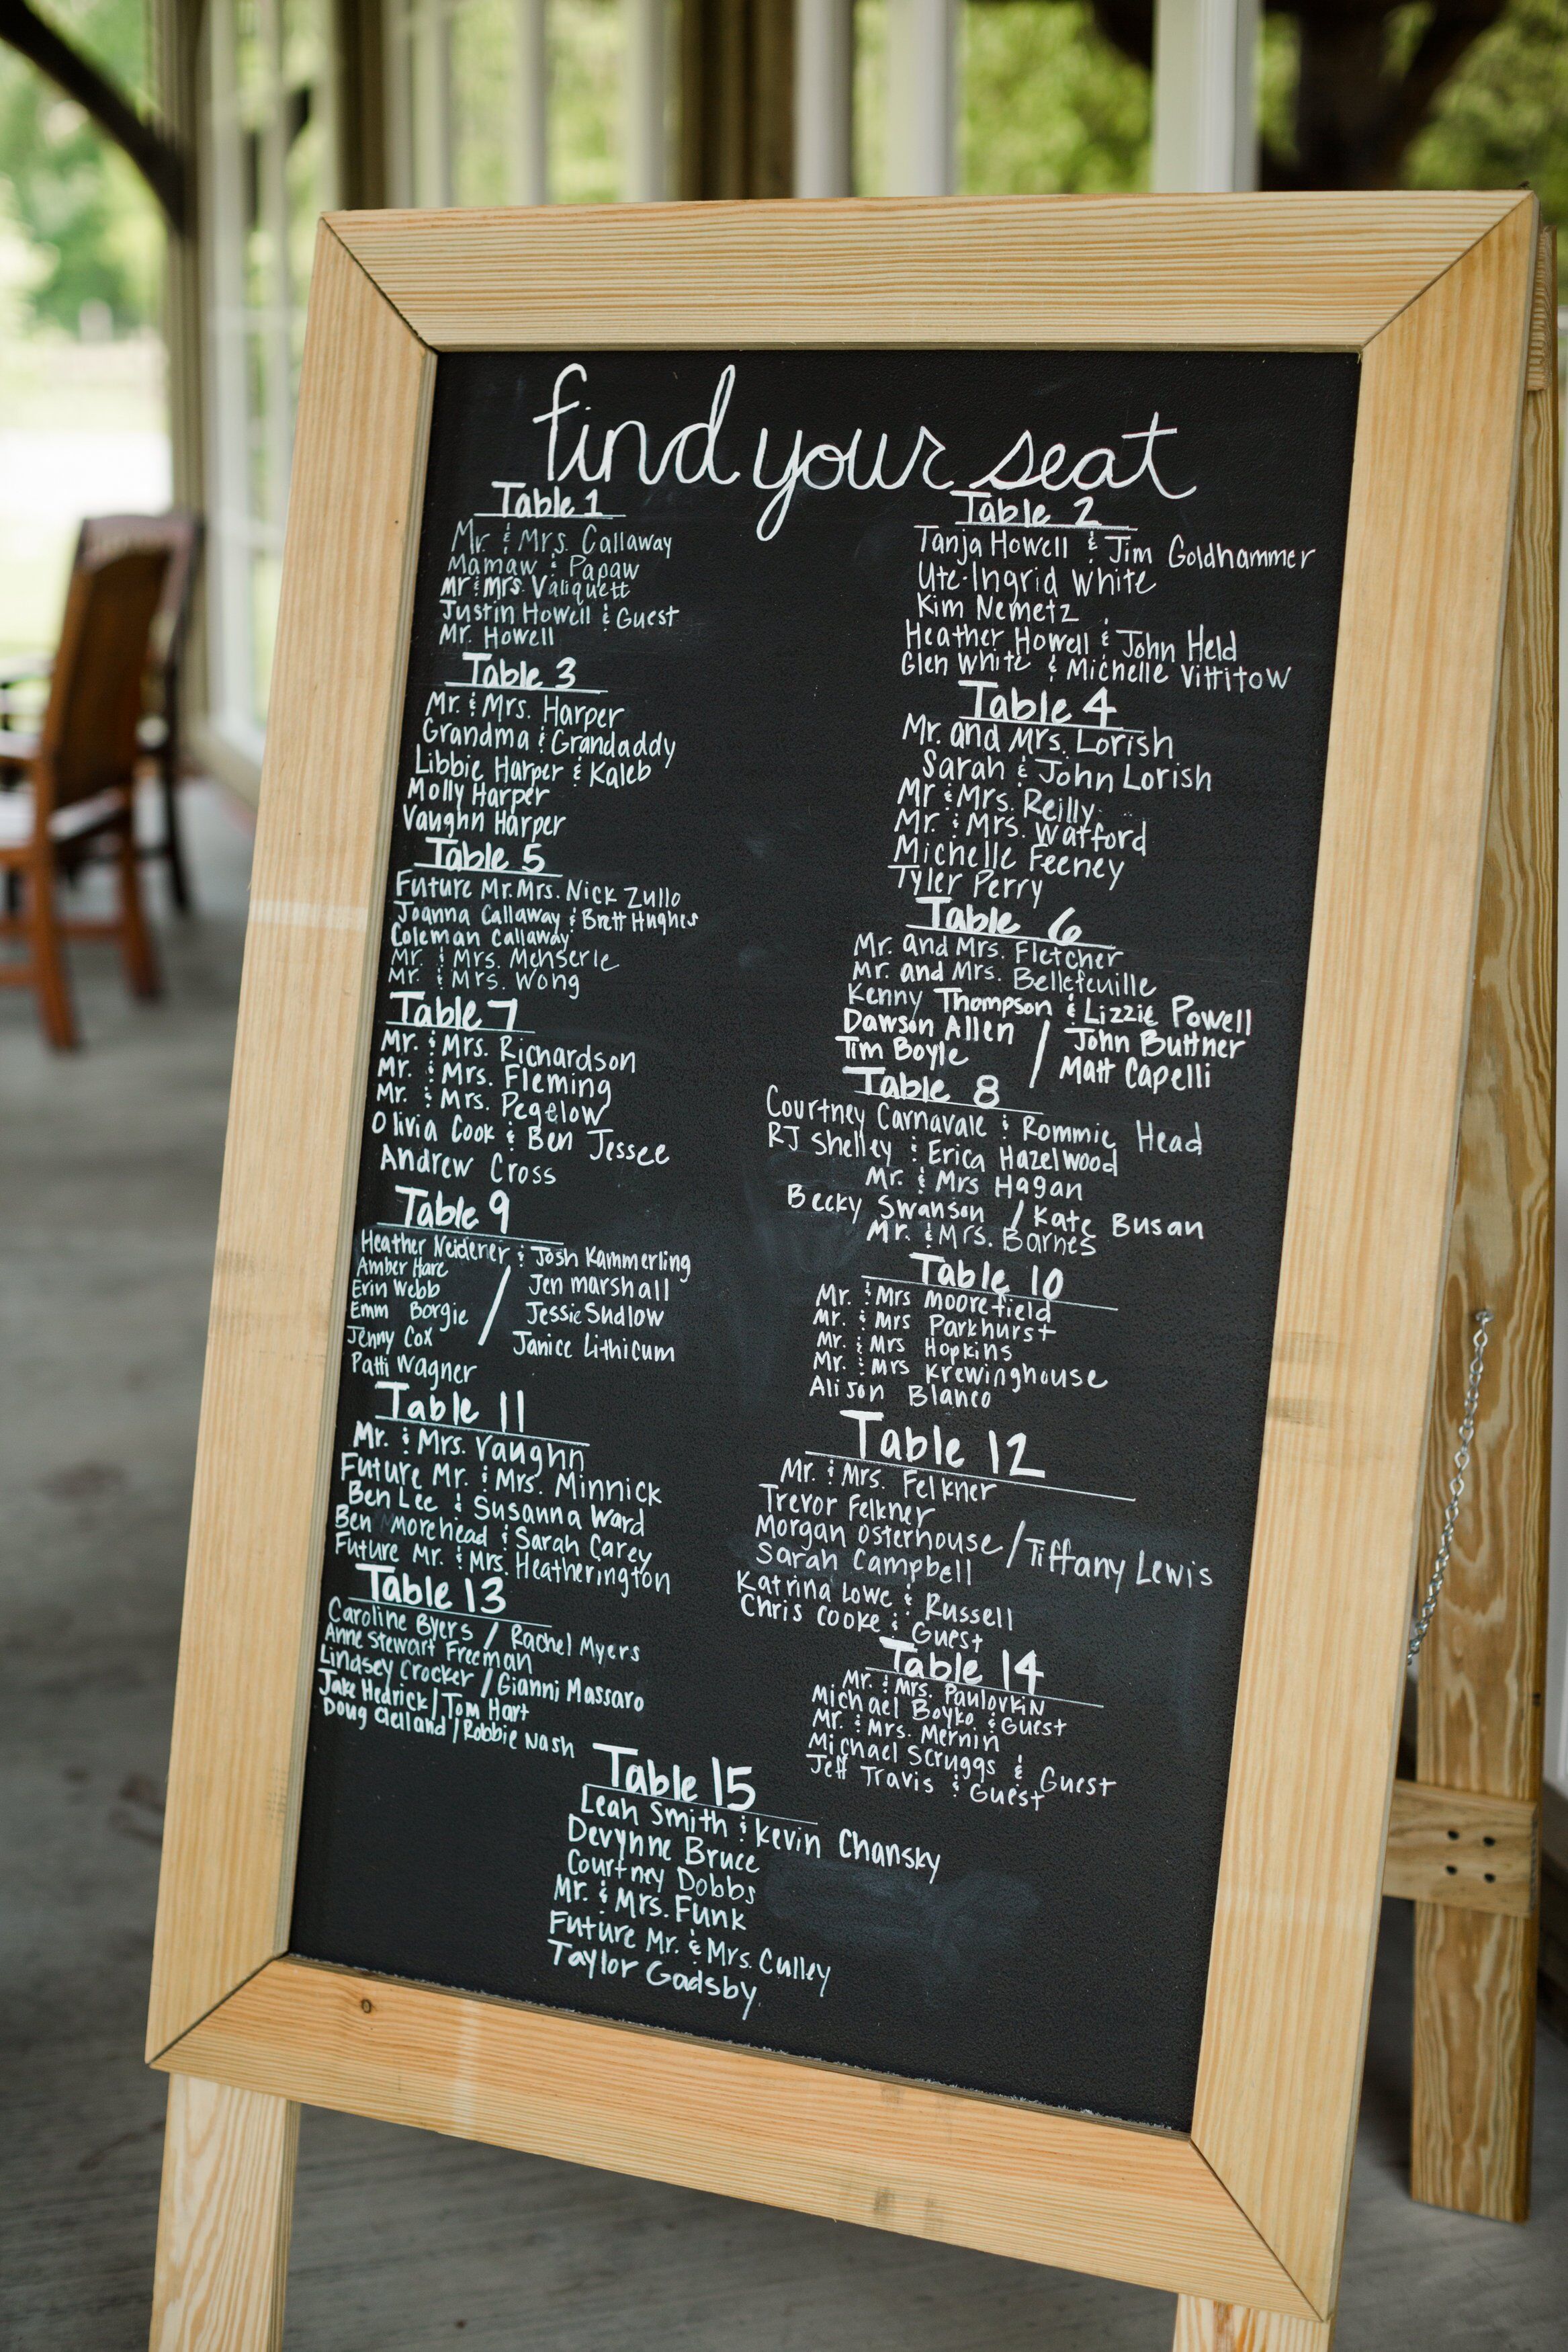 find your seat
Table 1
Mr. & Mrs. Callaway
Mamaw & Papaw
Mr & Mrs. Valiquett
Justin Howell & Guest
Mr. Howell
Table 2
Tanja Howell & Jim Goldhammer
Ute-Ingrid White
Kim Nemetz
Heather Howell & John Held
Glen White & Michelle Vittitow
Table 3
Mr. & Mrs. Harper
Grandma & Grandaddy
Libbie Harper & Kaleb
Molly Harper
Vaughn Harper
Table 4
Mr. and Mrs. Lorish
Sarah & John Lorish
Mr & Mrs. Reilly
Mr. & Mrs. Watford
Michelle Feeney
Tyler Perry
Table 5
Future Mr. Mrs. Nick Zullo
Joanna Callaway & Brett Hughes
Coleman Callaway
Mr. & Mrs. Menserie
Mr. & Mrs. Wong
Table 6
Mr. and Mrs. Fletcher
Mr. and Mrs. Bellefeuille
Kenny Thompson & Lizzie Powell
Dawson Allen / John Buttner
Tim Boyle / Matt Capelli
Table 7
Mr. & Mrs. Richardson
Mr. & Mrs. Fleming
Mr. & Mrs. Pegelow
Olivia Cook & Ben Jessee
Andrew Cross
Table 8
Courtney Carnavale & Rommie Head
RJ Shelley & Erica Hazelwood
Mr. & Mrs Hagan
Becky Swanson / Kate Busan
Mr. & Mrs. Barnes
Table 9
Heather Neidener & Josh Kammerling
Amber Hare / Jen Marshall
Erin Webb
Emm Borgie / Jessie Sudlow
Jenny Cox / Janice Lithicum
Patti Wagner
Table 10
Mr. & Mrs Moorefield
Mr. & Mrs Parkhurst
Mr. & Mrs Hopkins
Mr. & Mrs Krewinghouse
Alison Blanco
Table 11
Mr. & Mrs. Vaughn
Future Mr. & Mrs. Minnick
Ben Lee & Susanna Ward
Ben Morehead & Sarah Carey
Future Mr. & Mrs. Heatherington
Table 12
Mr. & Mrs. Felkner
Trevor Felkner
Morgan Osterhouse / Tiffany Lewis
Sarah Campbell
Katrina Lowe & Russell
Chris Cooke & Guest
Table 13
Caroline Byers / Rachel Myers
Anne Stewart Freeman
Lindsey Crocker / Gianni Massaro
Jake Hedrick / Tom Hart
Doug Clelland / Robbie Nash
Table 14
Mr. & Mrs. Paulovkin
Michael Boyko & Guest
Mr. & Mrs. Mernin
Michael Scruggs & Guest
Jeff Travis & Guest
Table 15
Leah Smith & Kevin Chansky
Devynne Bruce
Courtney Dobbs
Mr. & Mrs. Funk
Future Mr. & Mrs. Culley
Taylor Gadsby